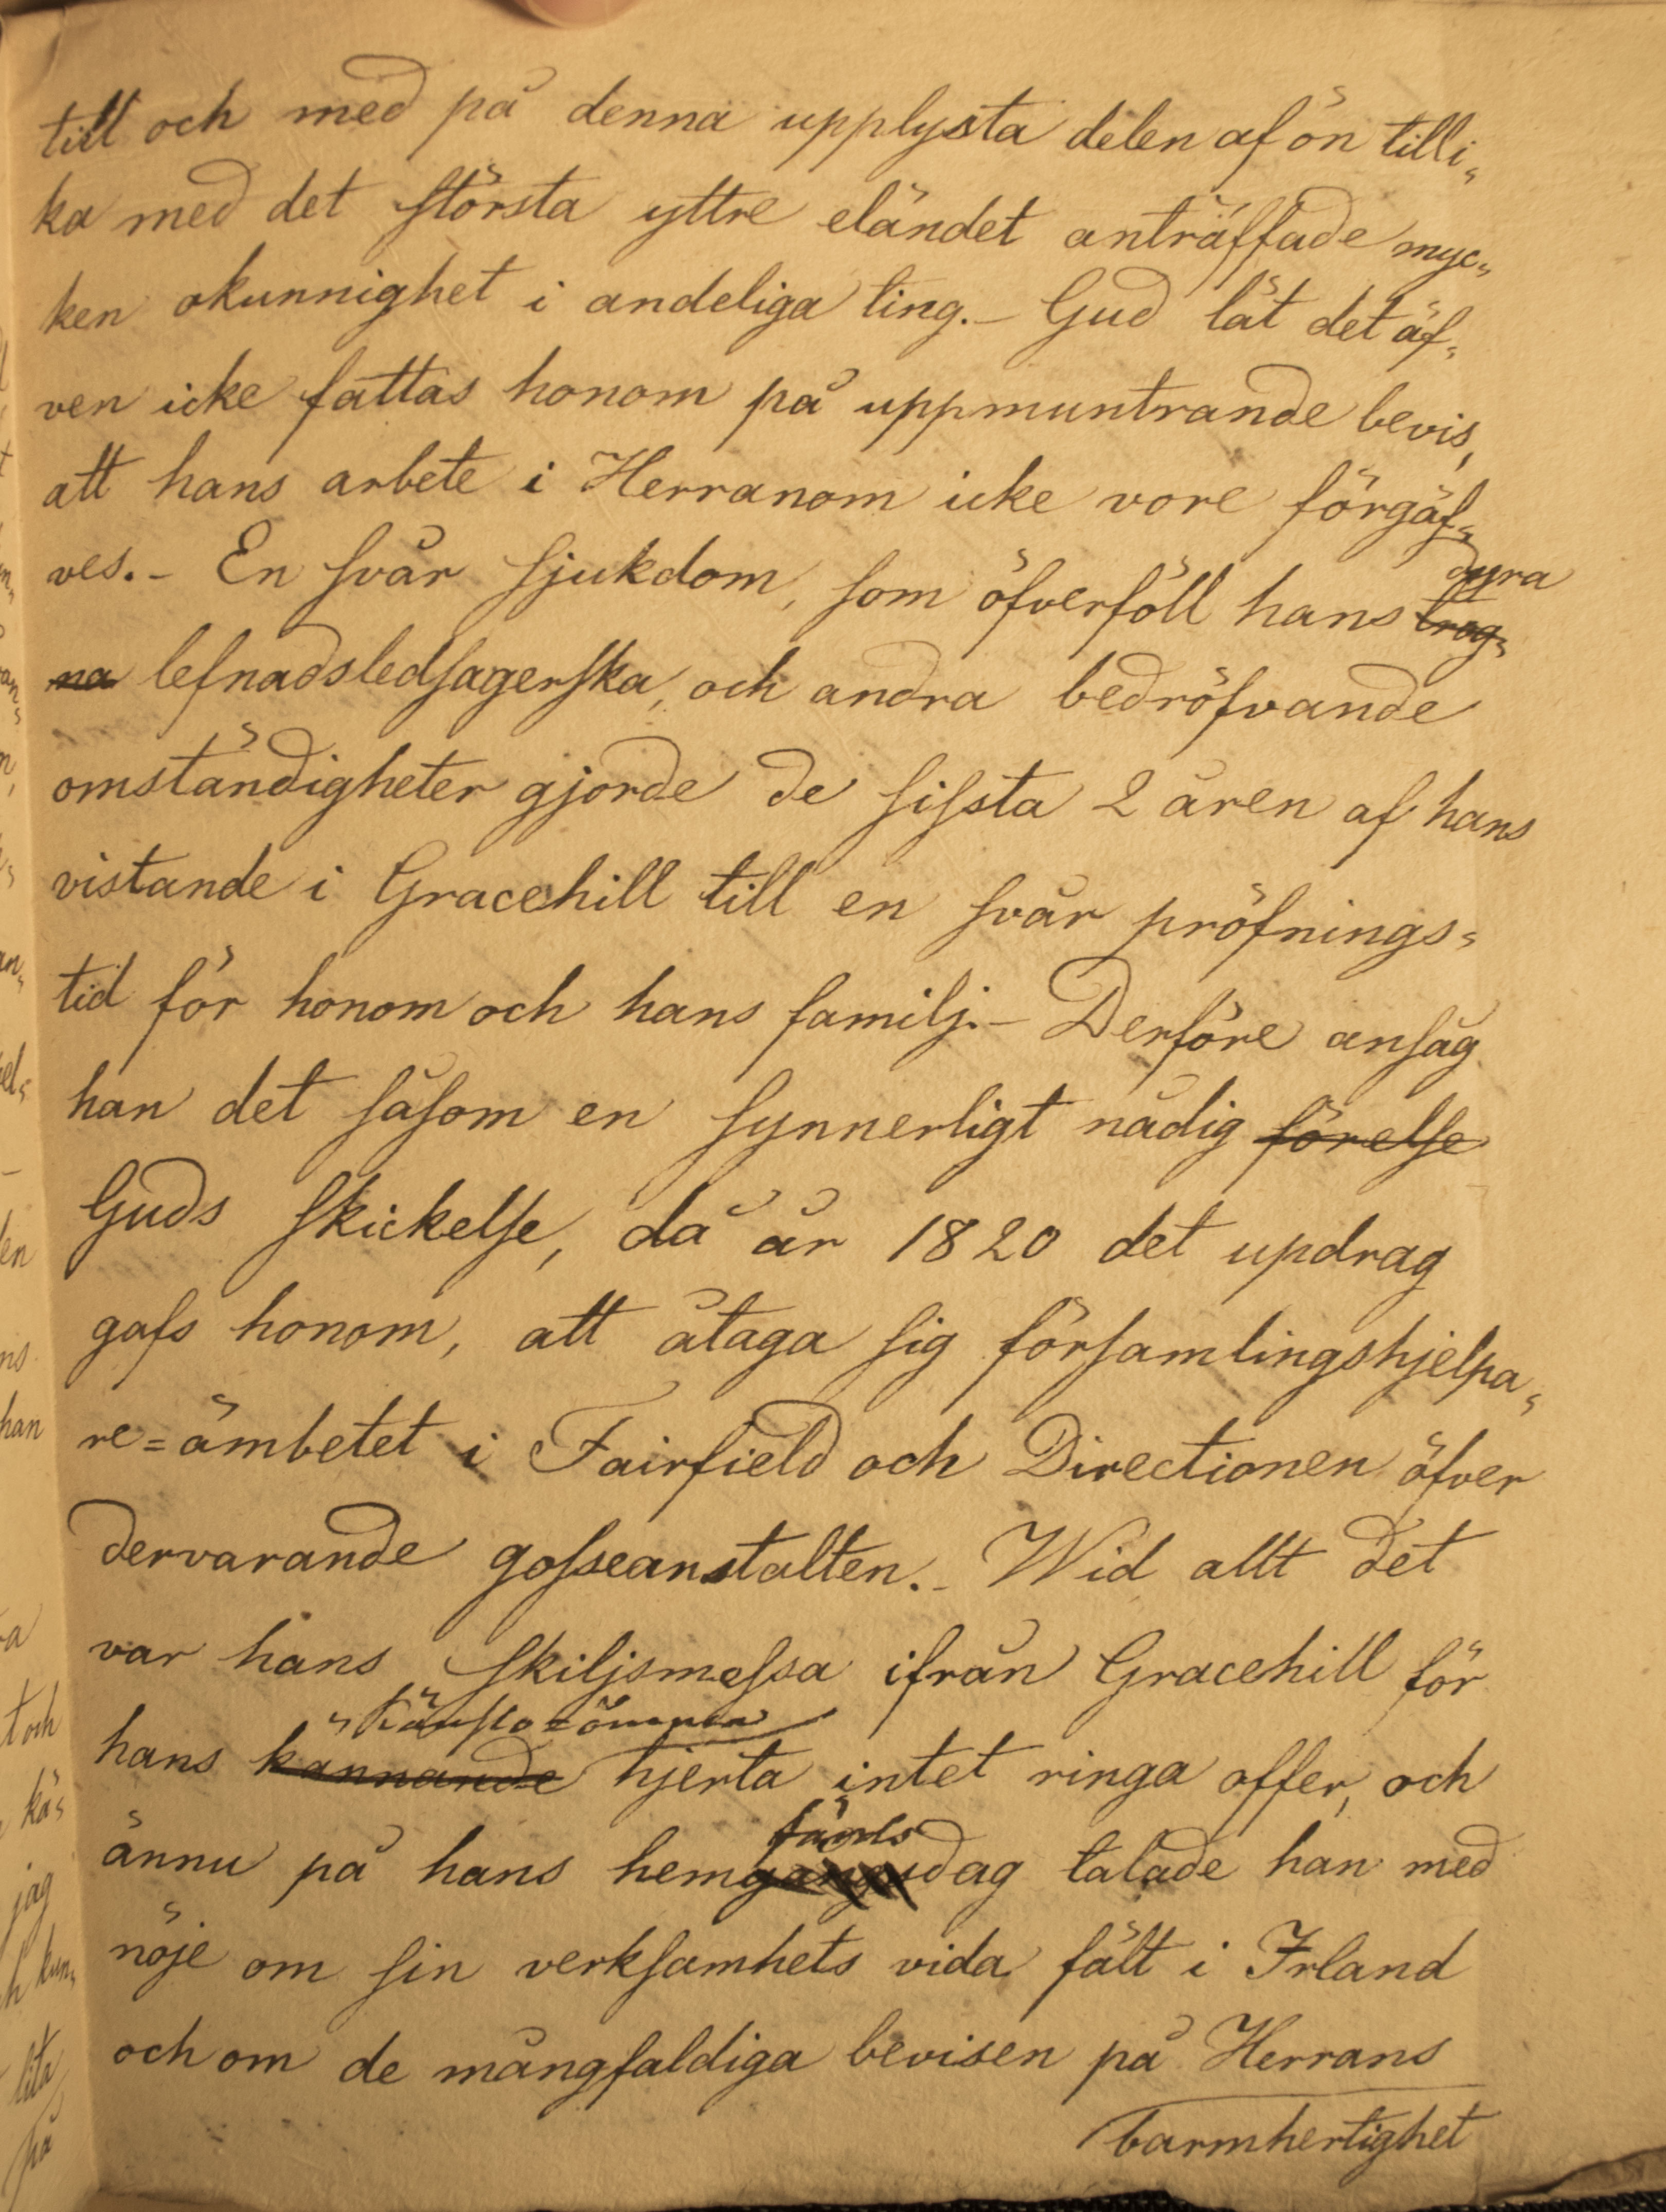 till och med på denna upplysta delen af ön tilli-
ka med det största yttre eländet anträffade myc-
ken okunnighet i andeliga ting.- Gud lät det äf-
ven icke fattas honom på uppmuntrande bevis,
att hans arbete i Herranom icke vore förgäf-
ves.- En svår sjukdom, som öfverföll hans trog- dyra
na lefnadsledsagerska, och andra bedröfvande
omständigheter gjorde de sissta 2 åren af hans
vistande i Gracehill till en svår pröfnings-
tid för honom och hans familj.- Derföre ansåg
han det såsom en synnerligt nådig förelse
Guds skickelse, då år 1820 det updrag
gafs honom, att åtaga sig församlingshjelpa-
re=ämbetet i Fairfield och Directionen öfver
dervarande gosseanstalten.- Wid allt det
var hans skiljsmessa ifrån Gracehill för
hans kännande hjerta intet ringa offer, och
färds
ännu på hans hemgangsdag talade han med
nöje om sin verksamhets vida fält i Irland
och om de mångfaldiga bevisen på Herrans
barmhertighet